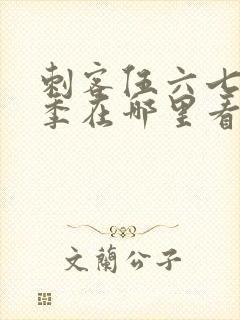 刺客伍六七
季在哪里看
文蘭公子